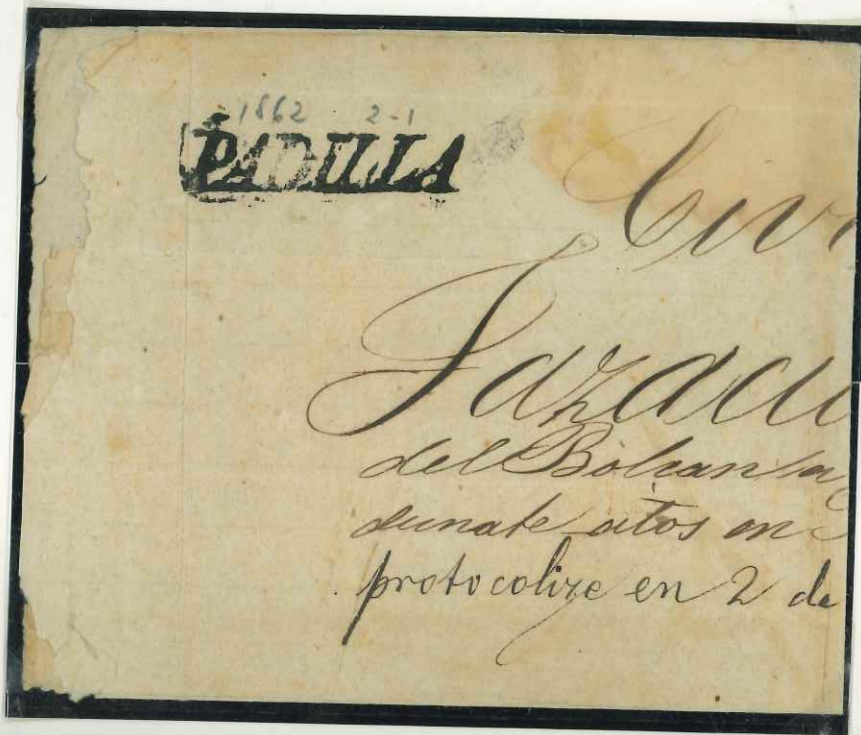 1862 2-1
PADILLA
Civi
Tazado
del Bolcan
sitos en
protocolize en 2 de